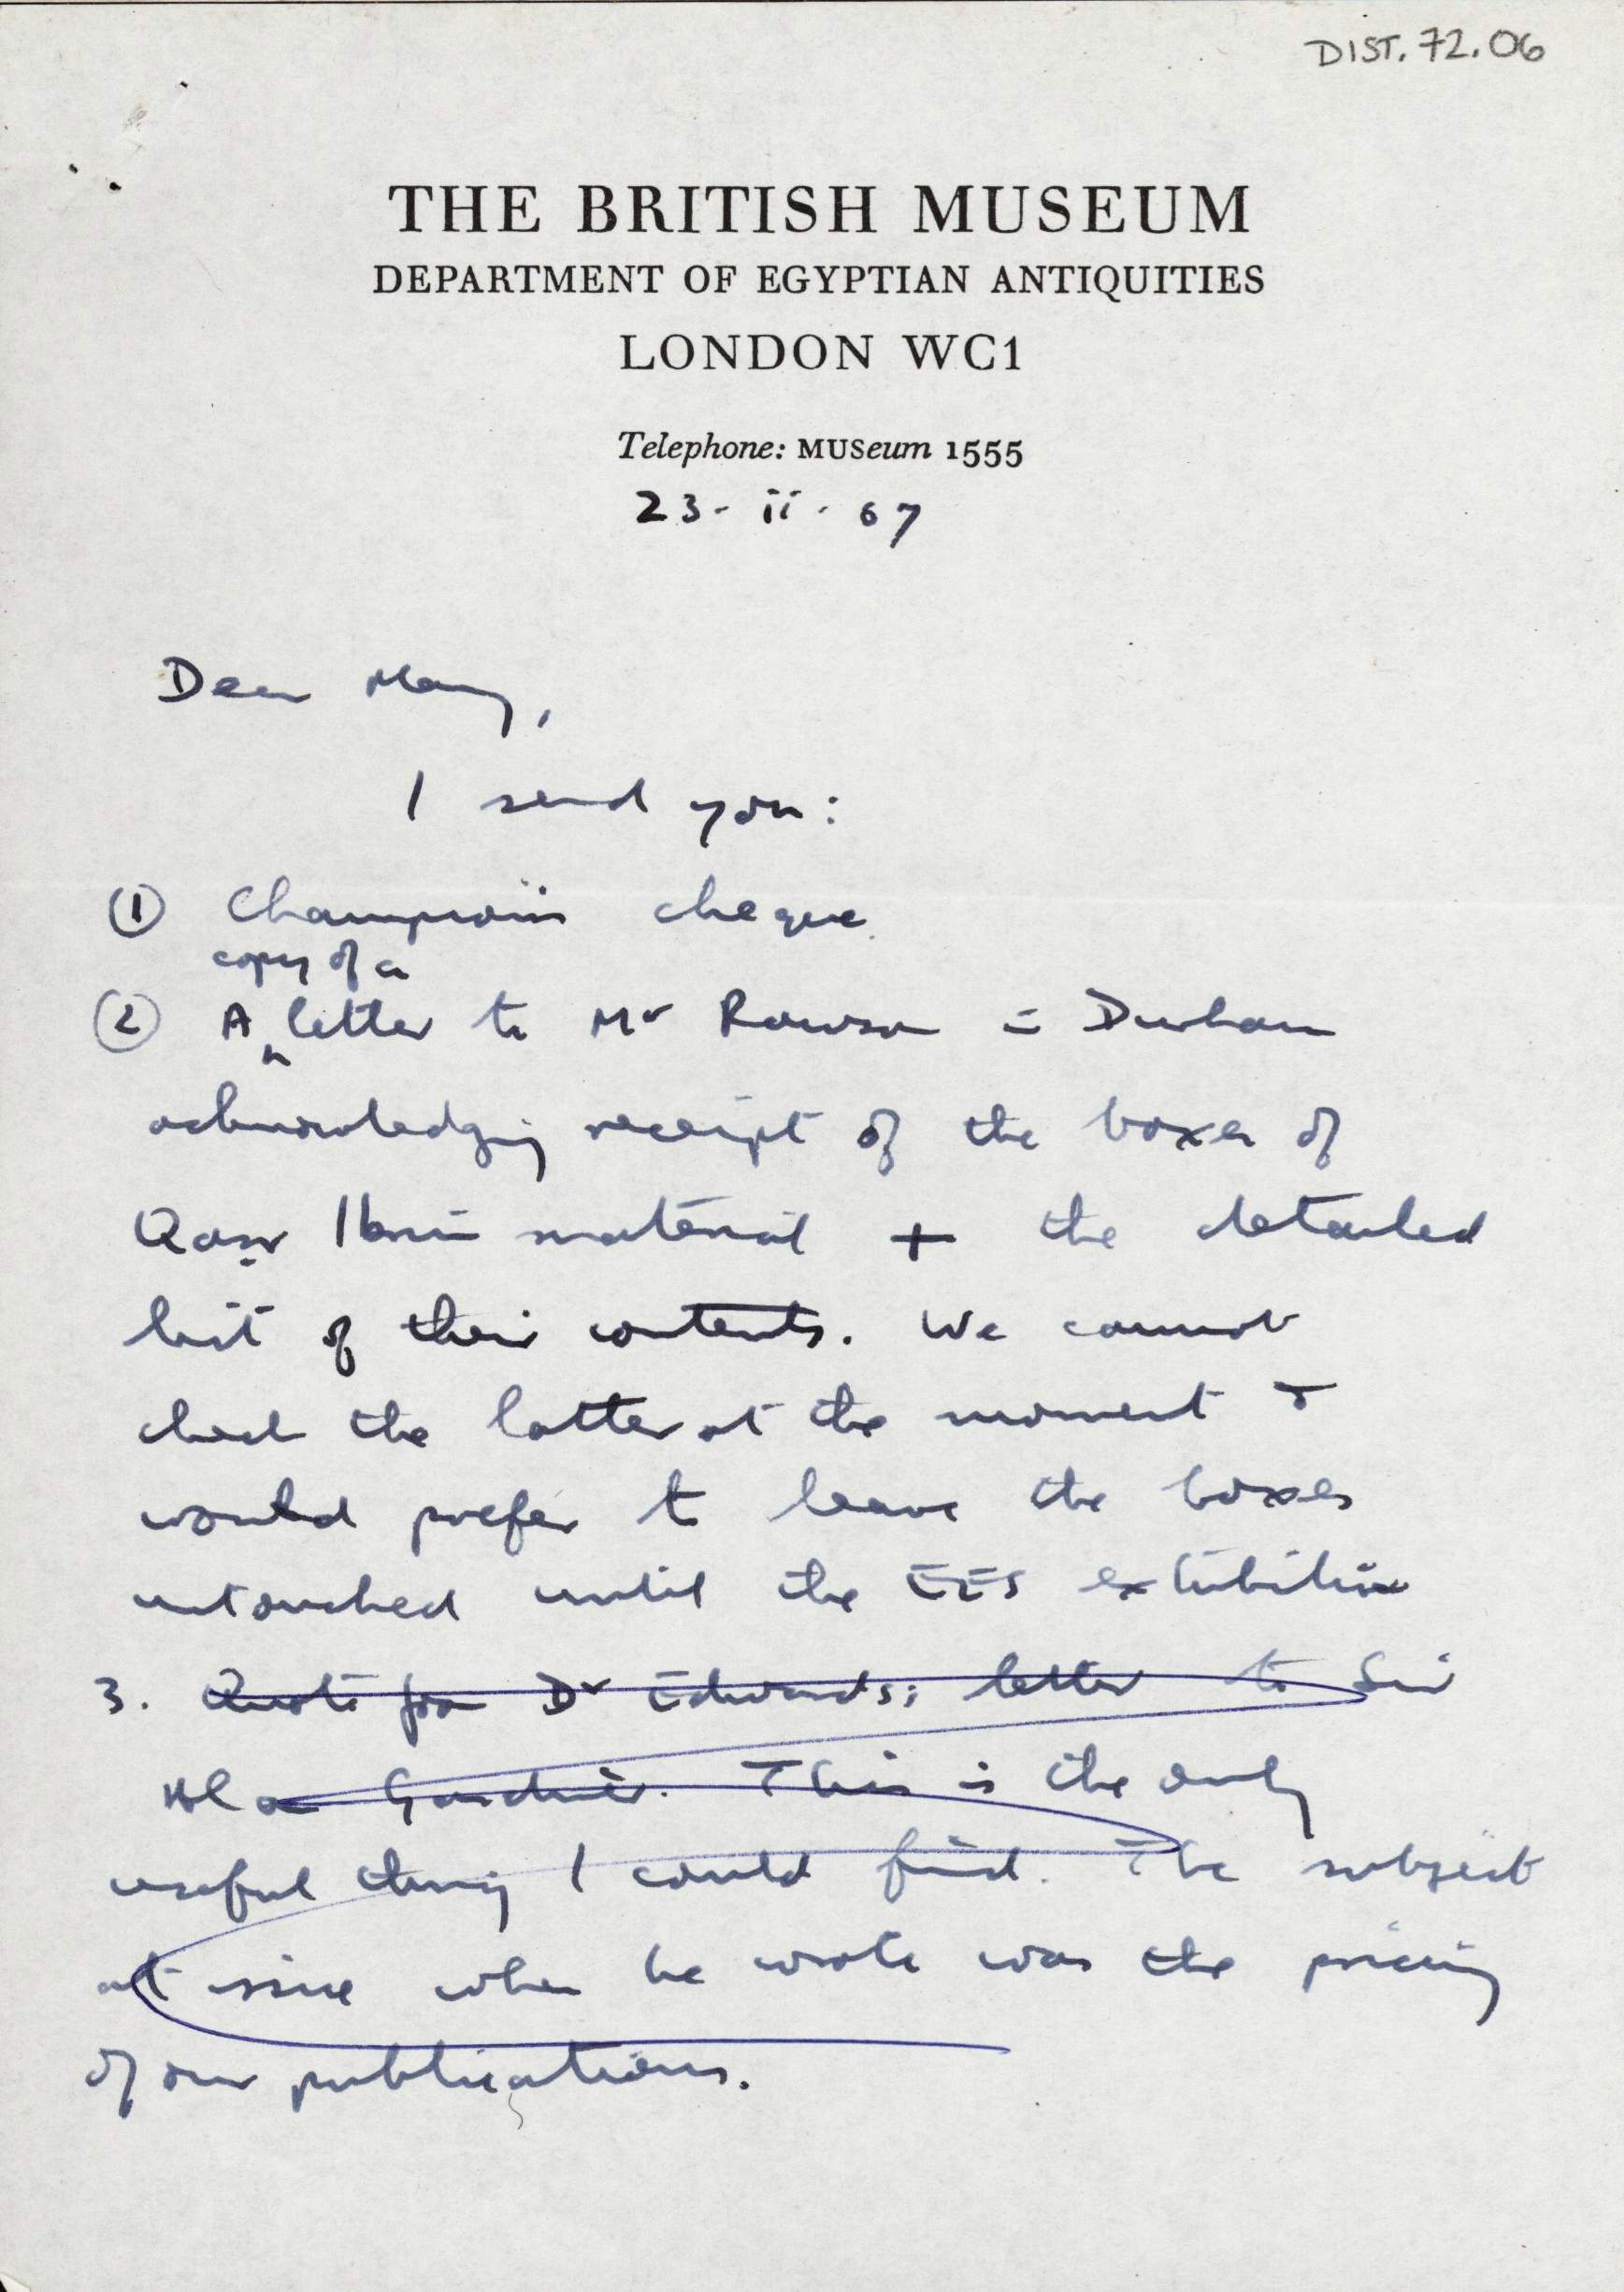 DIST. 72.06
THE BRITISH MUSEUM
DEPARTMENT OF EGYPTIAN ANTIQUITIES
LONDON WC1
Telephone: MUSeum 1555
23 - ii - 67
Dear Mary,
I send you:
(1) cheque.
copy of a
(2) A letter to Mr Rowson in Durham
acknowledging receipt of the boxes of
Qasr Ibrim material + the detailed
list of their contents. We cannot
check the latter at the moment &
would prefer to leave the boxes
untouched until the EES exhibition
3. Quote from Dr Edwards' letter to Sir
Alan Gardiner. This is the only
useful thing I could find. The subject
at issue when he wrote was the pricing
of our publications.